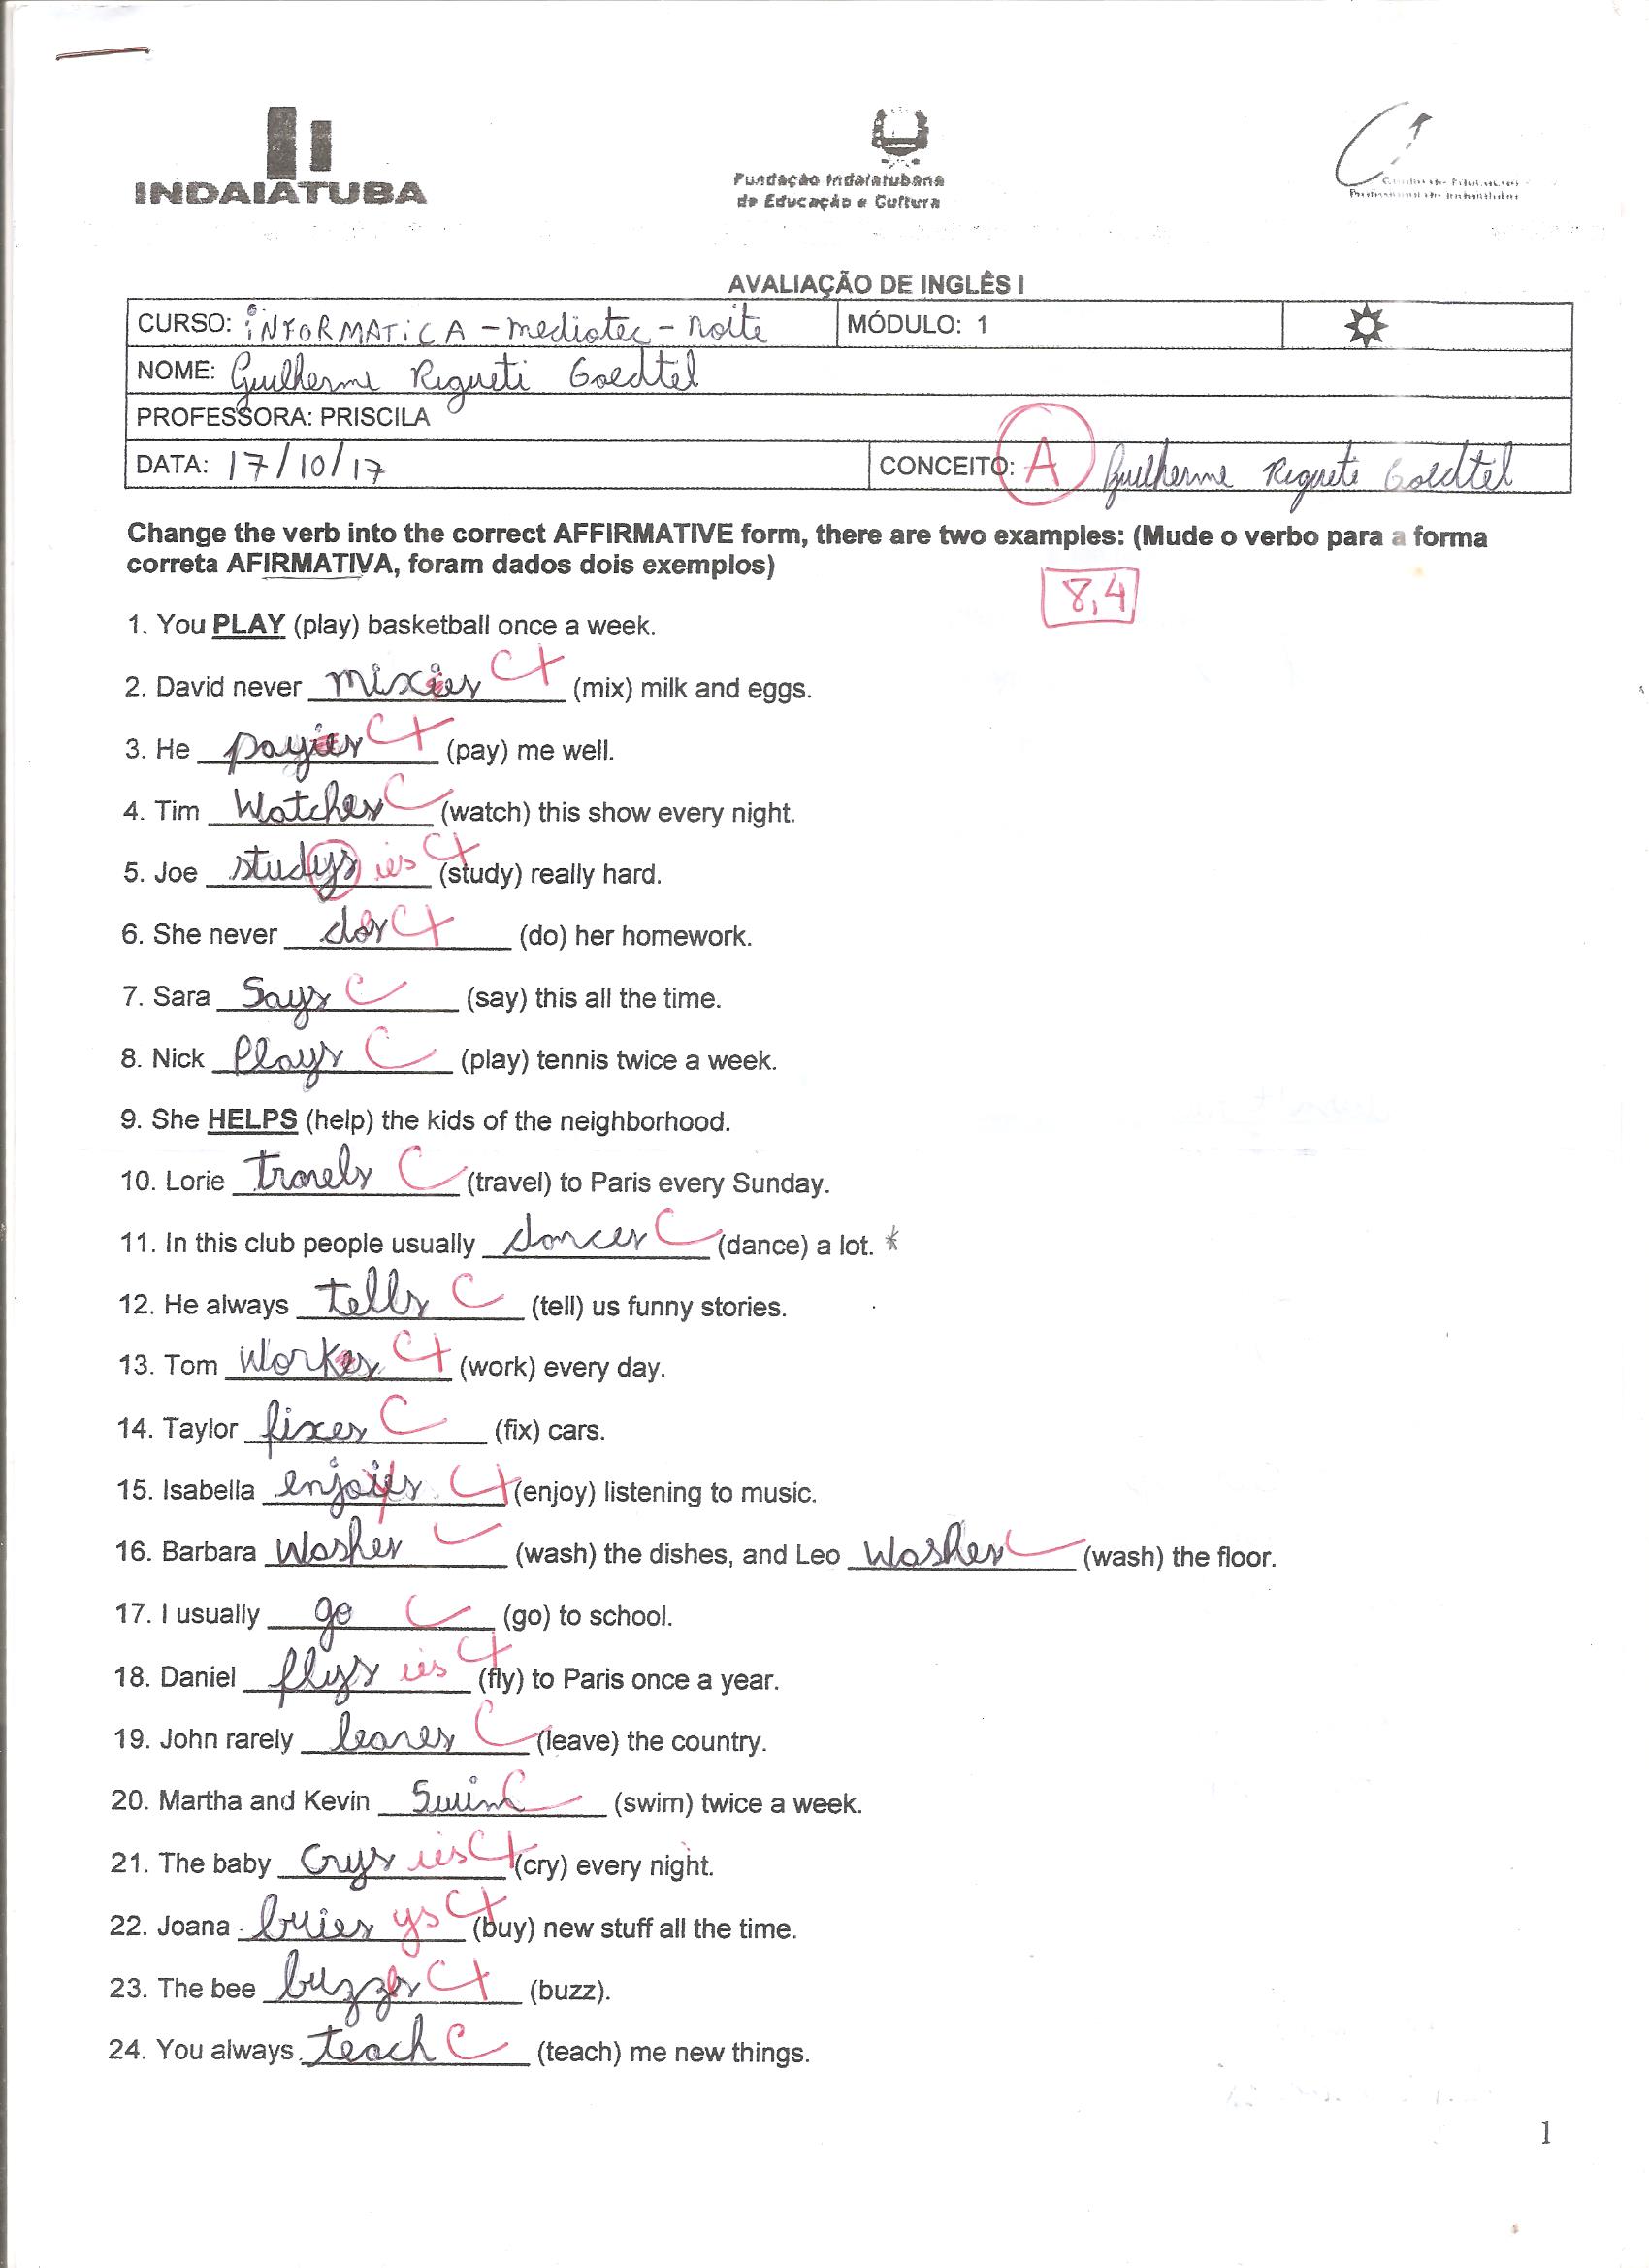 INDAIATUBA
Fundação Indaiatubana
de Educação e Cultura
AVALIAÇÃO DE INGLÊS I
CURSO: iNFORMATiCA - mediotec - noite MÓDULO: 1
NOME: Guilherme Rigueti Goedtel
PROFESSORA: PRISCILA
DATA: 17/10/17 CONCEITO: A Guilherme Rigueti Goedtel
Change the verb into the correct AFFIRMATIVE form, there are two examples: (Mude o verbo para a forma
correta AFIRMATIVA, foram dados dois exemplos)
8,4
1. You PLAY (play) basketball once a week.
2. David never mixies C+ (mix) milk and eggs.
3. He payies C+ (pay) me well.
4. Tim Watches C (watch) this show every night.
5. Joe studys ies C+ (study) really hard.
6. She never dos C+ (do) her homework.
7. Sara Says C (say) this all the time.
8. Nick Plays C (play) tennis twice a week.
9. She HELPS (help) the kids of the neighborhood.
10. Lorie travels C (travel) to Paris every Sunday.
11. In this club people usually dances C (dance) a lot. *
12. He always tells C (tell) us funny stories.
13. Tom Workes C+ (work) every day.
14. Taylor fixes C (fix) cars.
15. Isabella enjoies C+ (enjoy) listening to music.
16. Barbara Washes C (wash) the dishes, and Leo Washes C (wash) the floor.
17. I usually go C (go) to school.
18. Daniel flys ies C+ (fly) to Paris once a year.
19. John rarely leaves C (leave) the country.
20. Martha and Kevin Swim C (swim) twice a week.
21. The baby Crys ies C+ (cry) every night.
22. Joana buies ys C+ (buy) new stuff all the time.
23. The bee buzzes C+ (buzz).
24. You always teach C (teach) me new things.
1